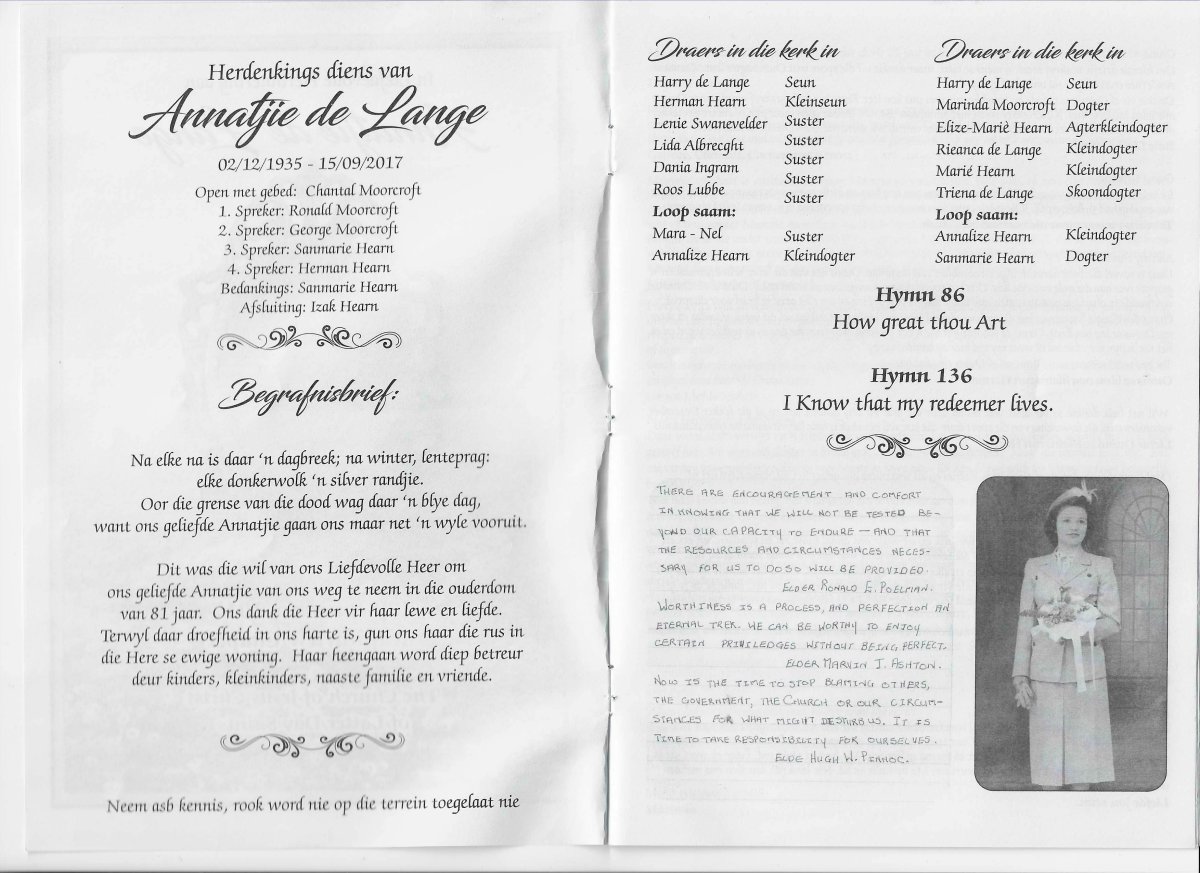 Herdenkings diens van
Annatjie de Lange
02/12/1935 - 15/09/2017
Open met gebed: Chantal Moorcroft
1. Spreker: Ronald Moorcroft
2. Spreker: George Moorcroft
3. Spreker: Sanmarie Hearn
4. Spreker: Herman Hearn
Bedankings: Sanmarie Hearn
Afsluiting: Izak Hearn
Begrafnisbrief:
Na elke na is daar 'n dagbreek; na winter, lenteprag:
elke donkerwolk 'n silver randjie.
Oor die grense van die dood wag daar 'n blye dag,
want ons geliefde Annatjie gaan ons maar net 'n wyle vooruit.
Dit was die wil van ons Liefdevolle Heer om
ons geliefde Annatjie van ons weg te neem in die ouderdom
van 81 jaar. Ons dank die Heer vir haar lewe en liefde.
Terwyl daar droefheid in ons harte is, gun ons haar die rus in
die Here se ewige woning. Haar heengaan word diep betreur
deur kinders, kleinkinders, naaste familie en vriende.
Neem asb kennis, rook word nie op die terrein toegelaat nie
Draers in die kerk in
Harry de Lange Seun
Herman Hearn Kleinseun
Lenie Swanevelder Suster
Lida Albrecght Suster
Dania Ingram Suster
Roos Lubbe Suster
Suster
Loop saam:
Mara - Nel Suster
Annalize Hearn Kleindogter
Draers in die kerk in
Harry de Lange Seun
Marinda Moorcroft Dogter
Elize-Mariè Hearn Agterkleindogter
Rieanca de Lange Kleindogter
Marié Hearn Kleindogter
Triena de Lange Skoondogter
Loop saam:
Annalize Hearn Kleindogter
Sanmarie Hearn Dogter
Hymn 86
How great thou Art
Hymn 136
I Know that my redeemer lives.
THERE ARE ENCOURAGEMENT AND COMFORT
IN KNOWING THAT WE WILL NOT BE TESTED BE-
YOND OUR CAPACITY TO ENDURE — AND THAT
THE RESOURCES AND CIRCUMSTANCES NECES-
SARY FOR US TO DO SO WILL BE PROVIDED.
ELDER RONALD E. POELMAN.
WORTHINESS IS A PROCESS, AND PERFECTION AN
ETERNAL TREK. WE CAN BE WORTHY TO ENJOY
CERTAIN PRIVILEDGES WITHOUT BEING PERFECT.
ELDER MARVIN J. ASHTON.
NOW IS THE TIME TO STOP BLAMING OTHERS,
THE GOVERNMENT, THE CHURCH OR OUR CIRCUM-
STANCES FOR WHAT MIGHT DISTURB US. IT IS
TIME TO TAKE RESPONSIBILITY FOR OURSELVES.
ELDE HUGH W. PINNOC.